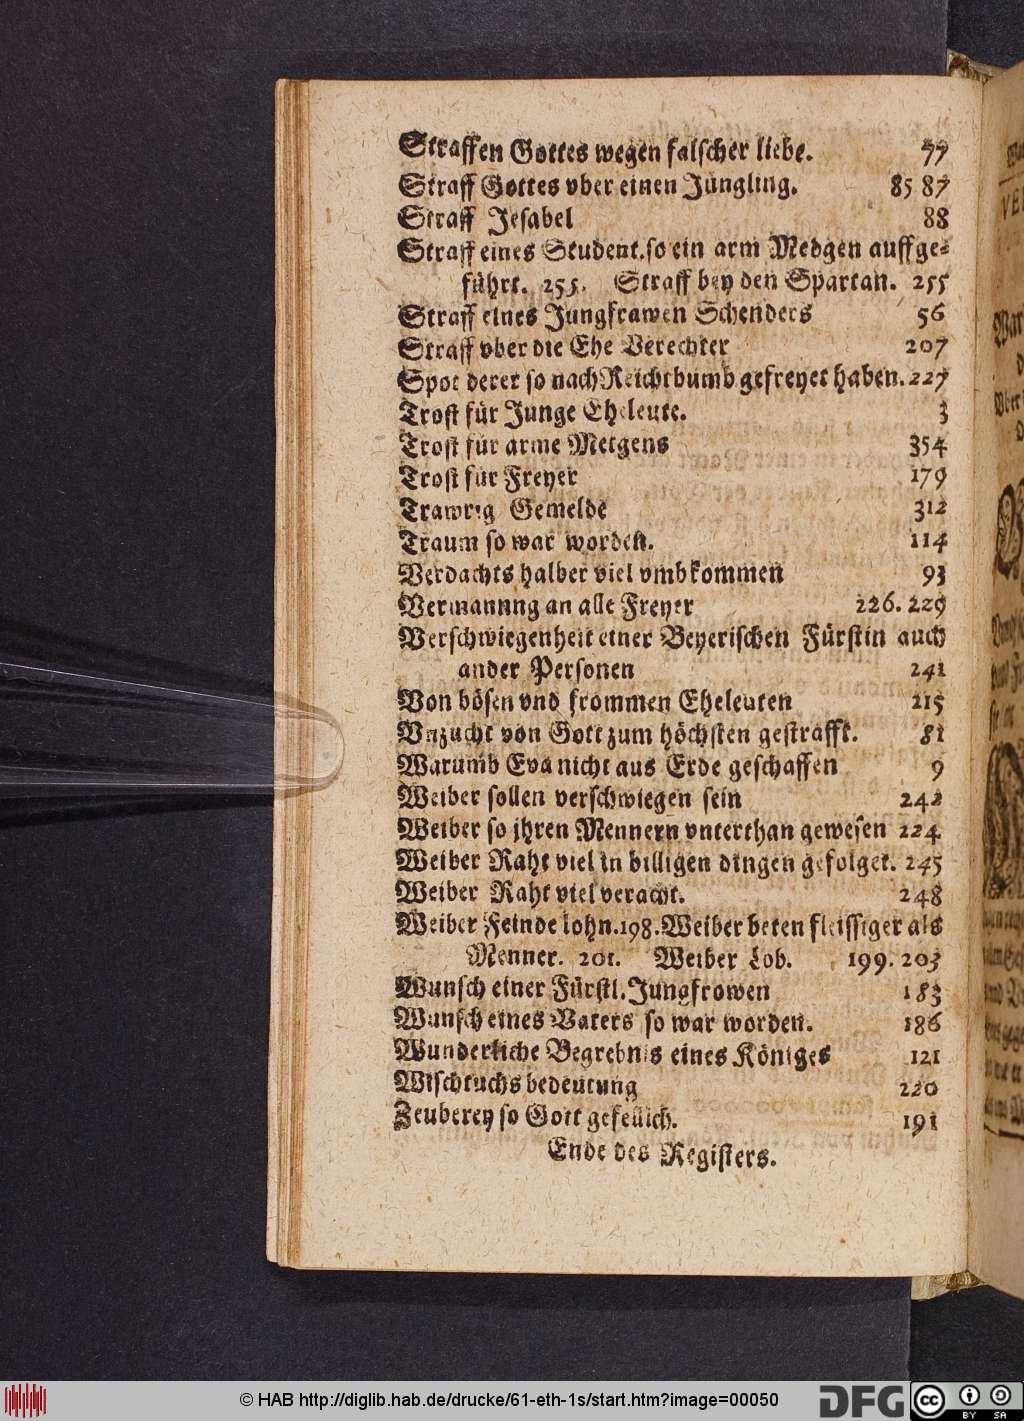 Straffen Gottes wegen falscher liebe. 77
Straff Gottes vber einen Jüngling. 85 87
Straff Jesabel 88
Straff eines Student. so ein arm Medgen auffge-
führt. 255. Straff bey den Spartan. 255
Straff eines Jungfrawen Schenders 56
Straff vber die Ehe Verechter 207
Spot derer so nach Reichthumb gefreyet haben. 227
Trost für Junge Eheleute. 3
Trost für arme Metgens 354
Trost für Freyer 179
Trawrig Gemelde 312
Traum so war worden. 114
Verdachts halber viel vmbkommen 93
Vermannng an alle Freyer 226. 229
Verschwiegenheit einer Beyerischen Fürstin auch
ander Personen 241
Von bösen vnd frommen Eheleuten 215
Vnzucht von Gott zum höchsten gestrafft. 81
Warumb Eva nicht aus Erde geschaffen 9
Weiber sollen verschwiegen sein 242
Weiber so jhren Mennern vnterthan gewesen 224
Weiber Raht viel in billigen dingen gefolget. 245
Weiber Raht viel veracht. 248
Weiber Feinde lohn. 198. Weiber beten fleissiger als
Menner. 201. Weiber Lob. 199. 203
Wunsch einer Fürstl. Jungfrowen 183
Wunsch eines Vaters so war worden. 186
Wunderliche Begrebnis eines Königes 121
Wischtuchs bedeutung 220
Zeuberey so Gott gefellich. 191
Ende des Registers.
© HAB http://diglib.hab.de/drucke/61-eth-1s/start.htm?image=00050
DFG
cc BY SA